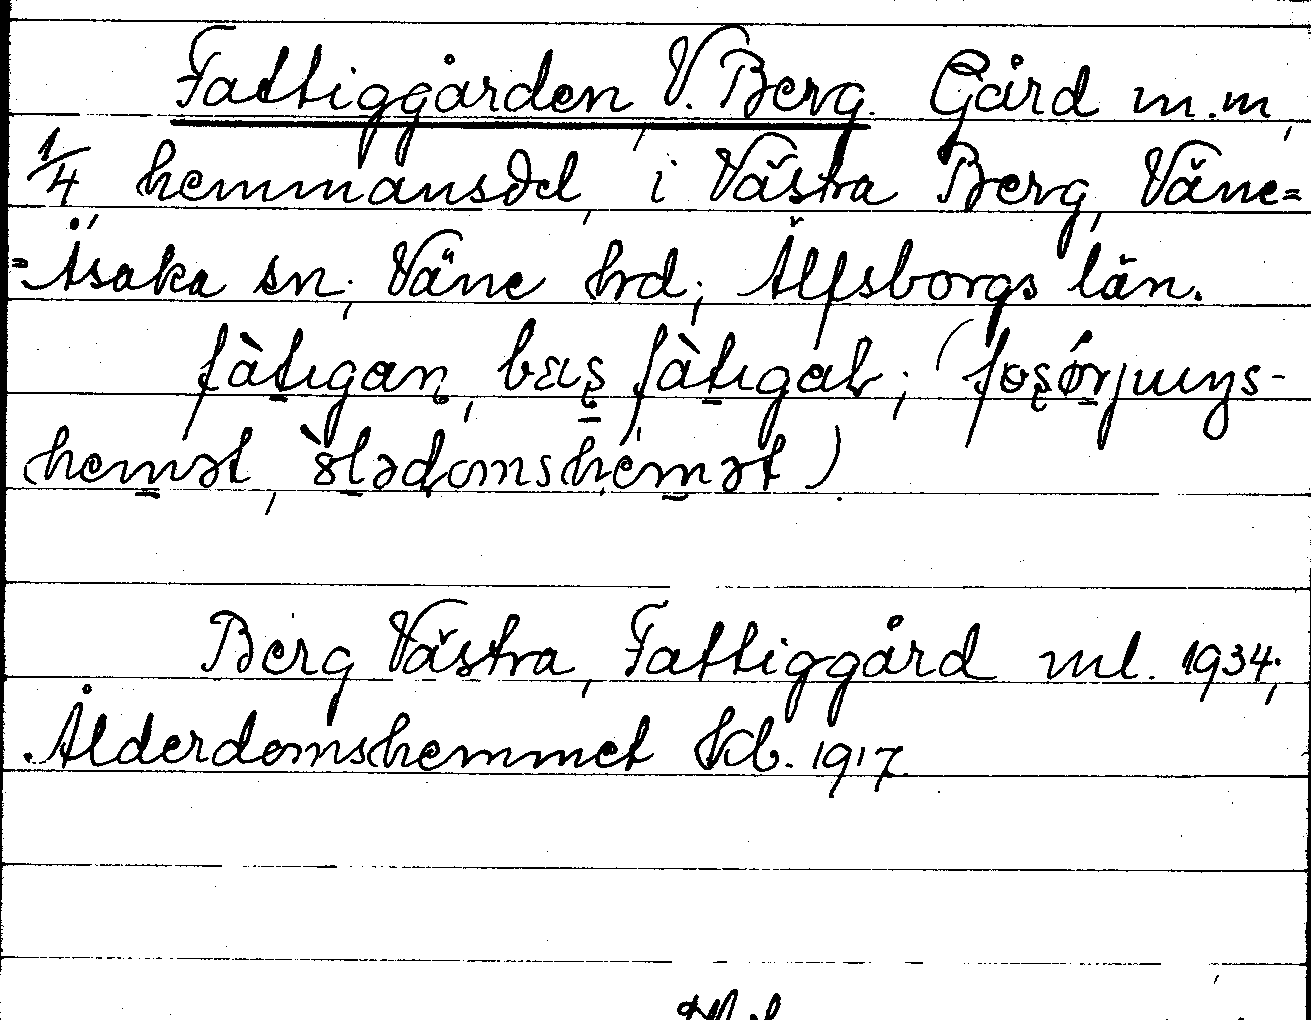 Fattiggården, V. Berg. Gård m.m,
1/4 hemmansdel, i Västra Berg, Väne=
=Åsaka sn; Väne hd; Älfsborgs län.
fàtıgan̥, bæş fàtıgaɫ; (foşǿrjuŋs-
hemət, ɔ̀lədomshémət).
Berg Västra, Fattiggård ml. 1934;
Ålderdomshemmet kb. 1917.